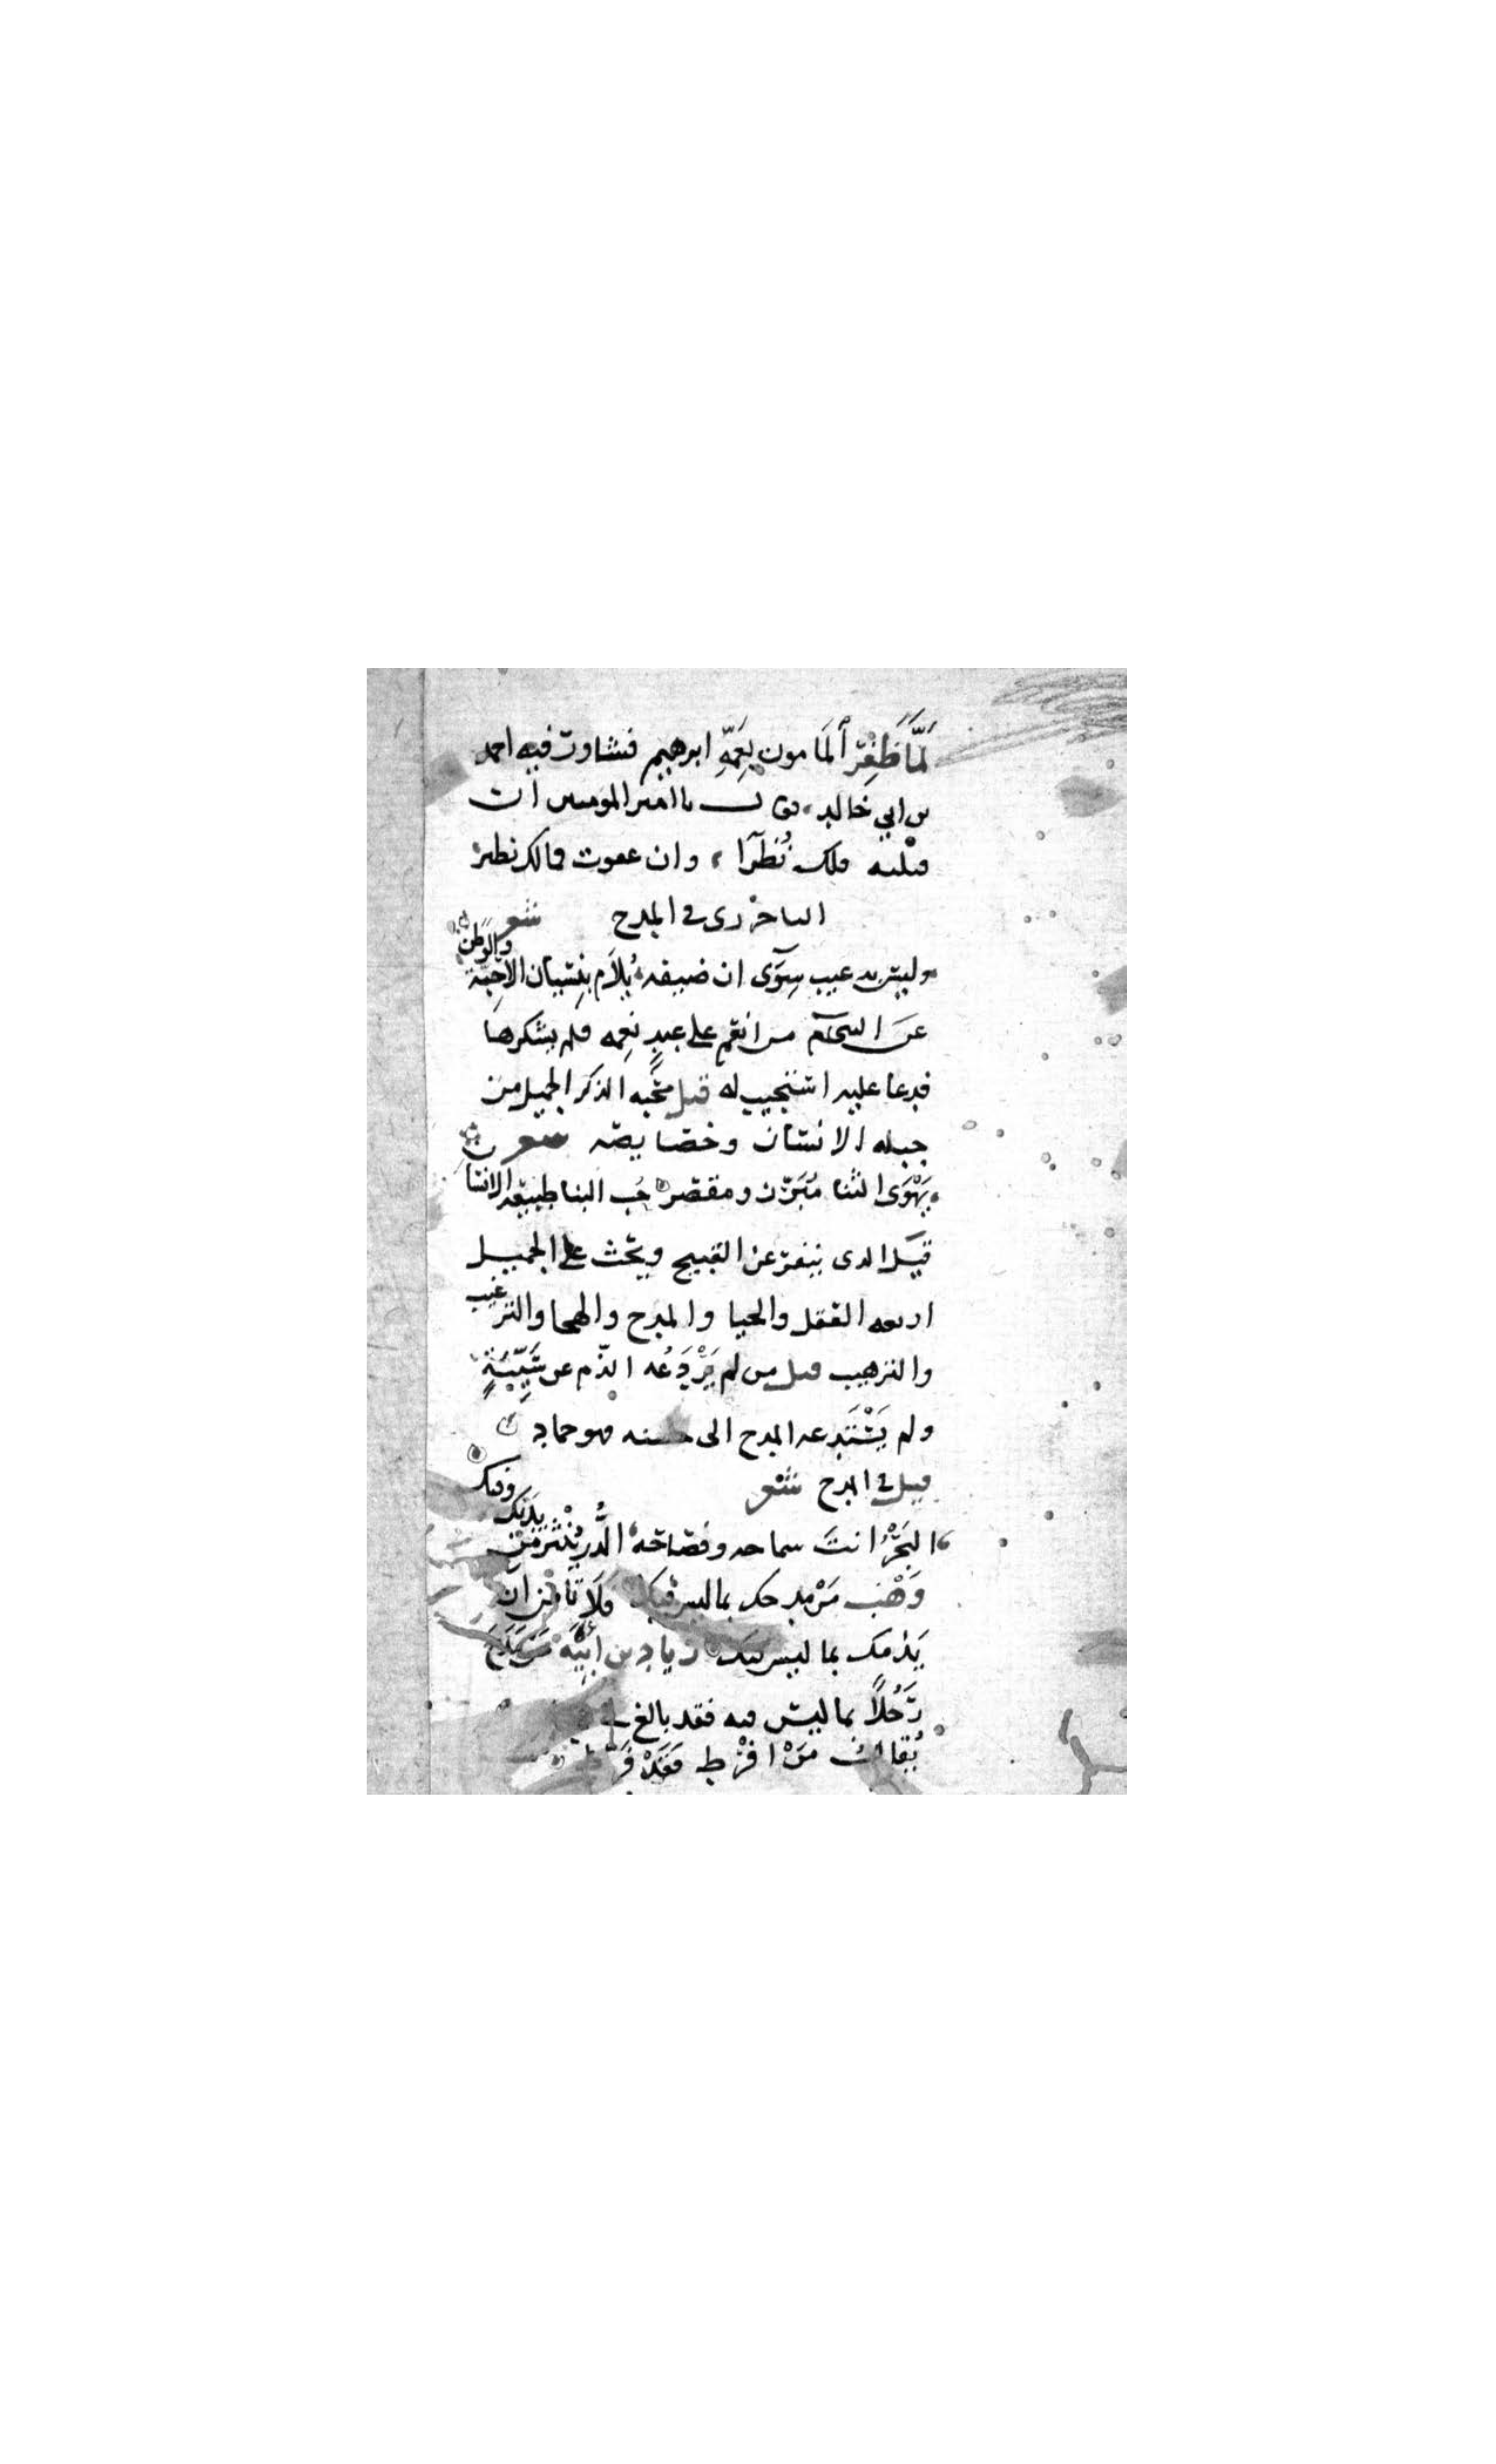 لَمَّا ظَفِرَ ألمَامون بِعَمِّهِ ابرهيم فشاور فيه احمد
بن ابي خالد فقال يا امير المومنين ان
قتلته فلك نُظَرَآ وان عفوت فمالك نظير
الباخرزى فى المدح شعر
وليس به عيب سِوَى ان ضيفه يُلَام بنِسيان الاحِبّة والوَطن
عَن السّجاد من انعَم على عبدٍ نِعمه فلم يشكرها
فدعا عليه استجيب له قيل محَبه الذكر الجميل من
جبله الانسَان وخصَايصه شعر
يَهْوَى الثنا مُبَرّز ومقصّر حُب الثنا طبيعَه الانسَا
قيل الذى ينفرّ عن القبيح ويحث على الجميل
اربعه العقل والحيا والمدح والهجا والترغيب
والترهيب قيل من لم يَرْدَعْه الذّم عن سَيِّئَةٍ
ولم يَسْتَدعه المدح الى حسنه فهو جماد
قيل فى المدح شعر
البَحْرُ انتَ سماحه وفصَاحَه الدُّر يُنْثَر مِن يَدَيْك وفيك
وَهْب مَنْ مدحك بما ليس فيك فَلَا تَأمَن ان
يَذمك بما ليس فيك زياد بن ابيْه مَن مَدَح
رَجُلاً بما ليسَ فيه فقد بالغ فى
يُقال مَنْ افْرَط فَقَدْ